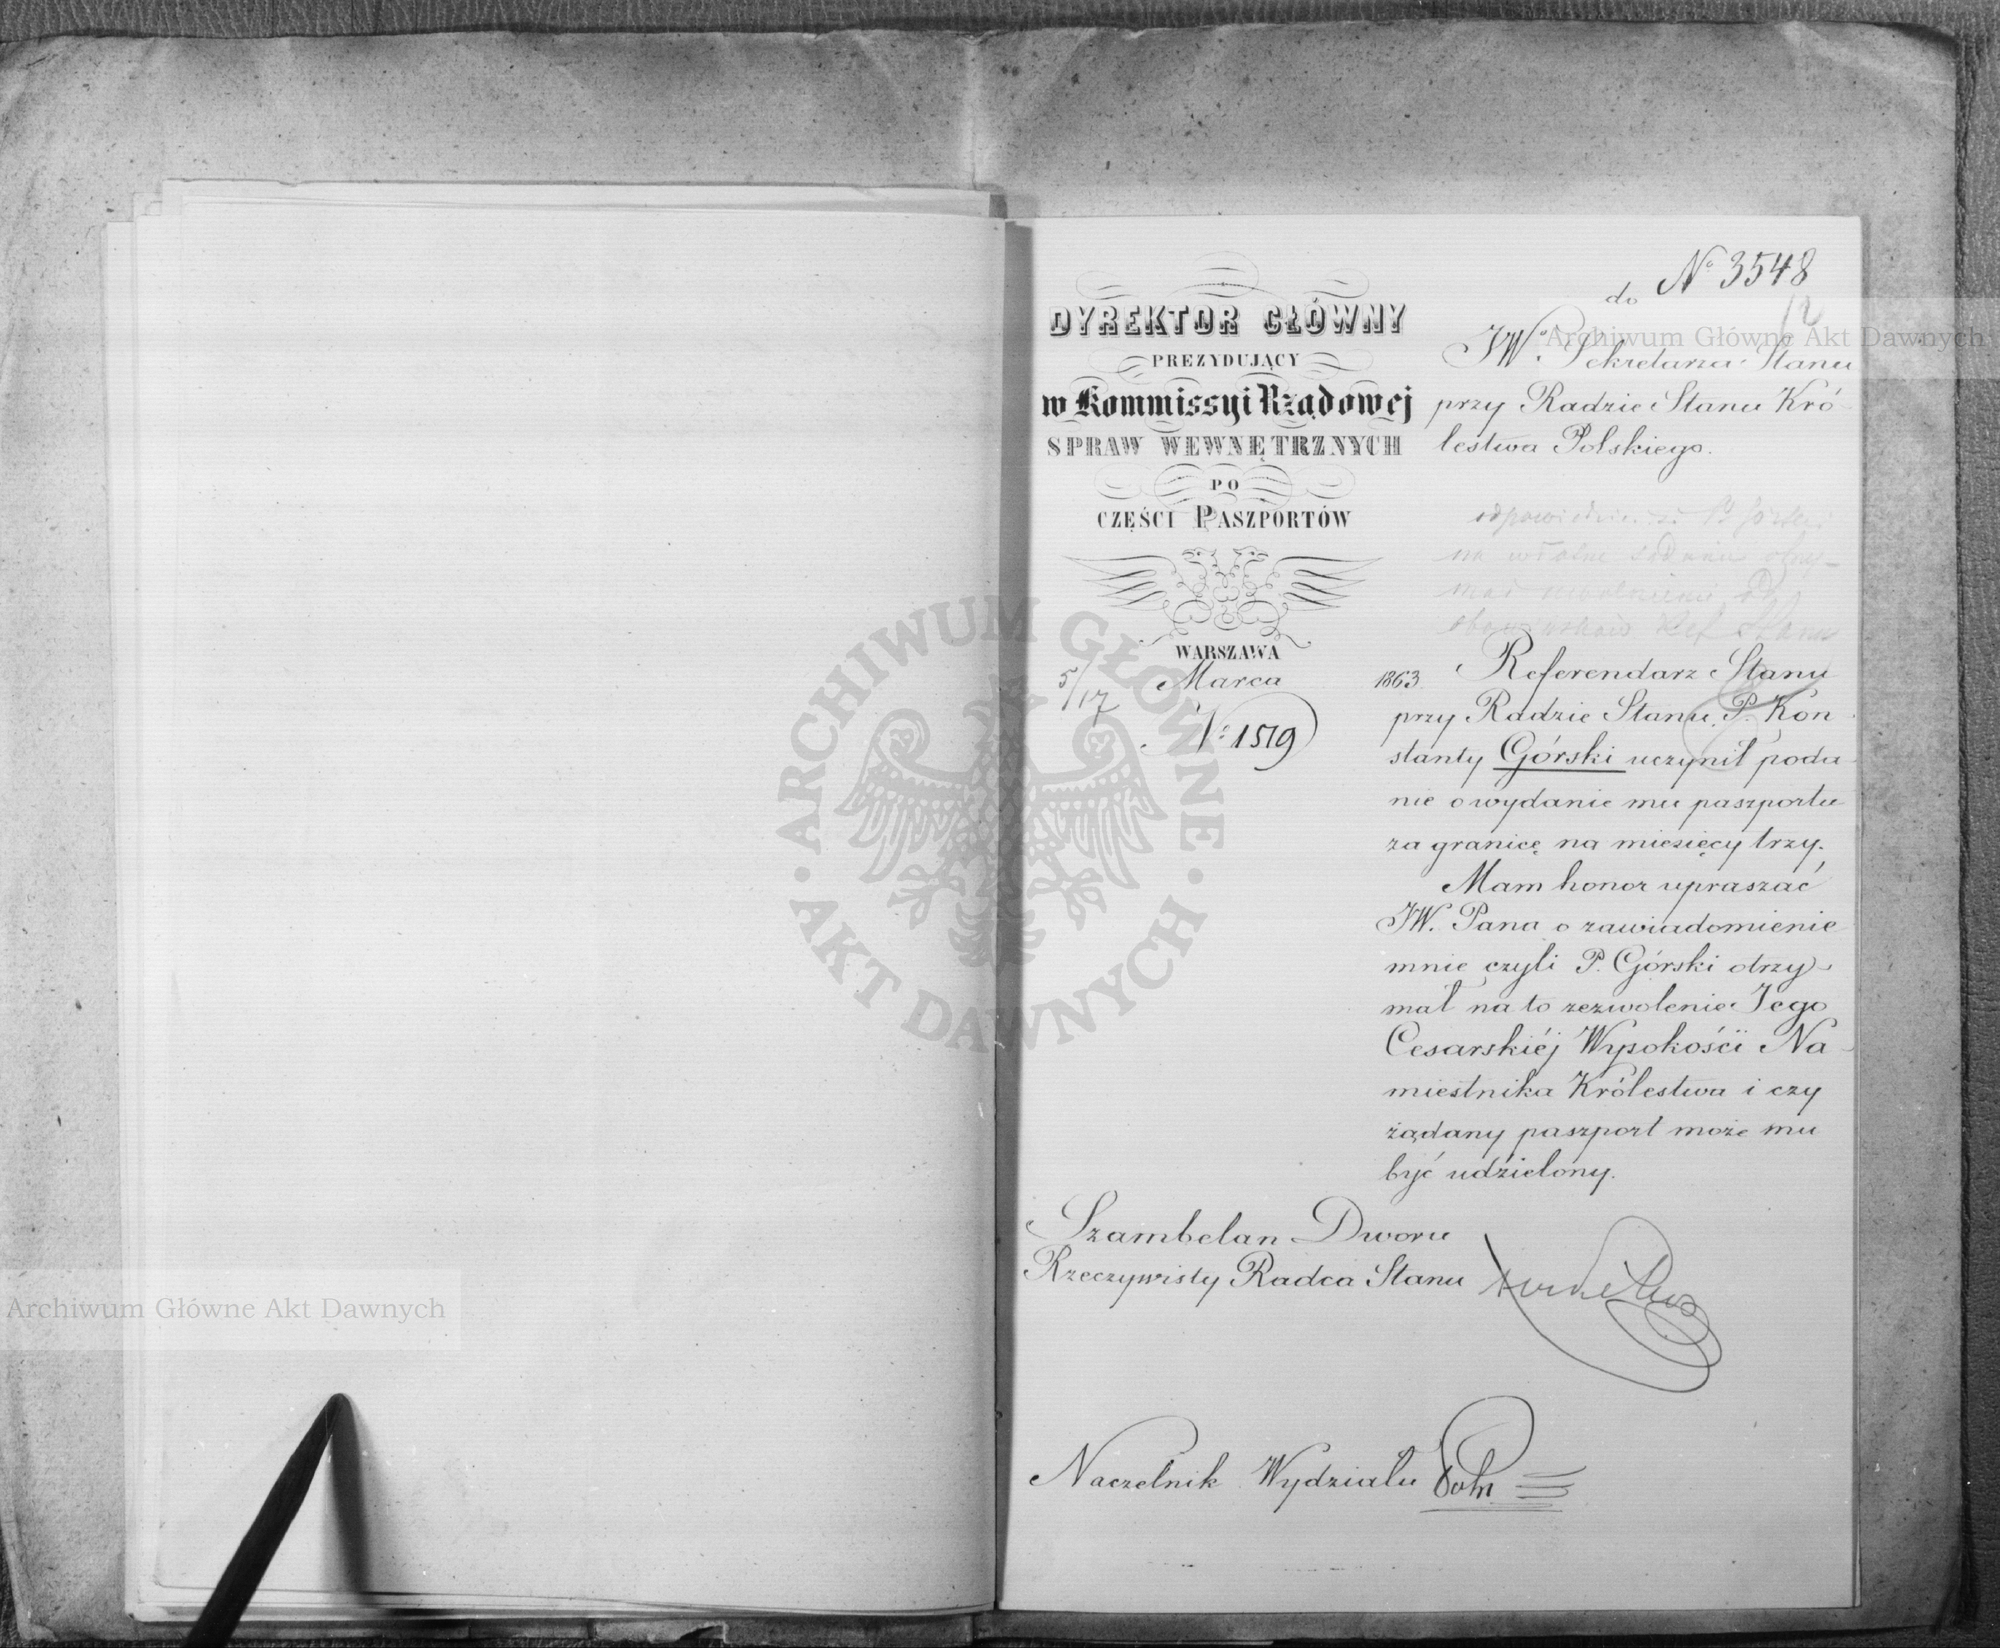 do № 3548
12
DYREKTOR GŁÓWNY
PREZYDUJĄCY
w Kommissyi Rządowej
SPRAW WEWNĘTRZNYCH
PO
CZĘŚCI PASZPORTÓW
WARSZAWA
5/17 Marca 1863.
№ 1519
JWo Sekretarza Stanu
przy Radzie Stanu Kró-
lestwa Polskiego.
odpowiedzieć że P. Górski
na własne żądanie otrzy-
mał uwolnienie od
obowiązków Ref. Stanu
Referendarz Stanu
przy Radzie Stanu, P. Kon-
stanty Górski uczynił poda-
nie o wydanie mu paszportu
za granicę na miesięcy trzy.
Mam honor upraszać
JW. Pana o zawiadomienie
mnie czyli P. Górski otrzy-
mał na to zezwolenie Jego
Cesarskiéj Wysokości Na-
miestnika Królestwa i czy
żądany paszport może mu
być udzielony.
Szambelan Dworu
Rzeczywisty Radca Stanu
Naczelnik Wydziału
Archiwum Główne Akt Dawnych
Archiwum Główne Akt Dawnych
ARCHIWUM GŁÓWNE · AKT DAWNYCH ·